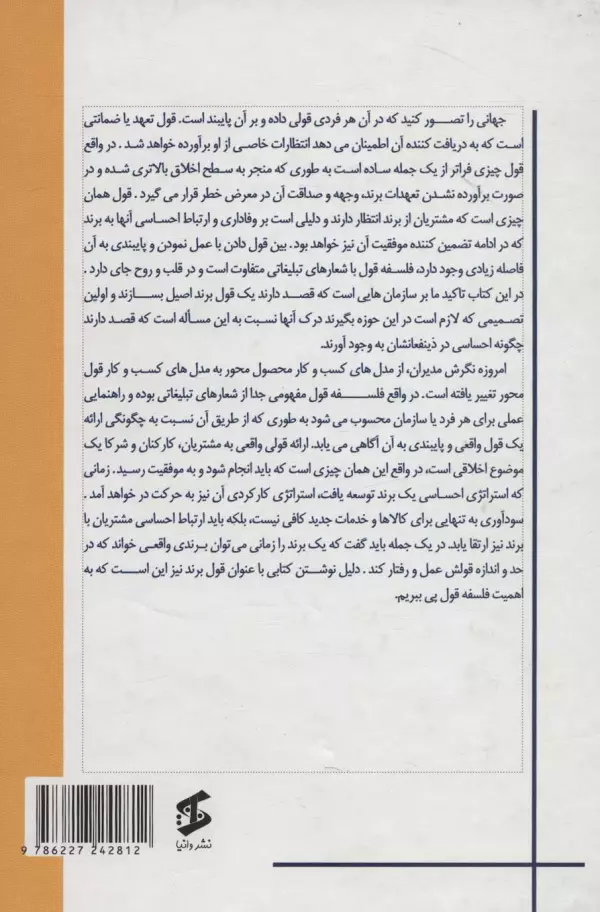 جهانی را تصور کنید که در آن هر فردی قولی داده و بر آن پایبند است. قول تعهد یا ضمانتی
است که به دریافت کننده آن اطمینان می دهد انتظارات خاصی از او برآورده خواهد شد . در واقع
قول چیزی فراتر از یک جمله ساده است به طوری که منجر به سطح اخلاق بالاتری شده و در
صورت برآورده نشدن تعهدات برند، وجهه و صداقت آن در معرض خطر قرار می گیرد . قول همان
چیزی است که مشتریان از برند انتظار دارند و دلیلی است بر وفاداری و ارتباط احساسی آنها به برند
که در ادامه تضمین کننده موفقیت آن نیز خواهد بود. بین قول دادن با عمل نمودن و پایبندی به آن
فاصله زیادی وجود دارد، فلسفه قول با شعارهای تبلیغاتی متفاوت است و در قلب و روح جای دارد .
در این کتاب تاکید ما بر سازمان هایی است که قصد دارند یک قول برند اصیل بسازند و اولین
تصمیمی که لازم است در این حوزه بگیرند درک آنها نسبت به این مسأله است که قصد دارند
چگونه احساسی در ذینفعانشان به وجود آورند.
امروزه نگرش مدیران، از مدل های کسب و کار محصول محور به مدل های کسب و کار قول
محور تغییر یافته است. در واقع فلسفه قول مفهومی جدا از شعارهای تبلیغاتی بوده و راهنمایی
عملی برای هر فرد یا سازمان محسوب می شود به طوری که از طریق آن نسبت به چگونگی ارائه
یک قول واقعی و پایبندی به آن آگاهی می یابد. ارائه قولی واقعی به مشتریان، کارکنان و شرکا یک
موضوع اخلاقی است، در واقع این همان چیزی است که باید انجام شود و به موفقیت رسید. زمانی
که استراتژی احساسی یک برند توسعه یافت، استراتژی کارکردی آن نیز به حرکت در خواهد آمد .
سودآوری به تنهایی برای کالاها و خدمات جدید کافی نیست، بلکه باید ارتباط احساسی مشتریان با
برند نیز ارتقا یابد. در یک جمله باید گفت که یک برند را زمانی می‌توان برندی واقعی خواند که در
حد و اندازه قولش عمل و رفتار کند . دلیل نوشتن کتابی با عنوان قول برند نیز این است که به
اهمیت فلسفه قول پی ببریم.
نشر وانیا
9 786227 242812